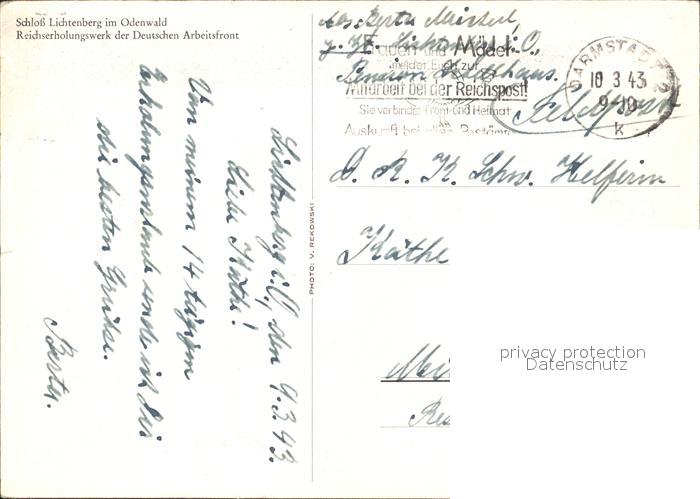 Schloß Lichtenberg im Odenwald
Reichserholungswerk der Deutschen Arbeitsfront
Lichtenberg i.O., den 9.3.43.
Liebe Käthe!
Von meinem 14 tägigen
Erholungsurlaub sende ich Dir
die besten Grüße.
Berta.
PHOTO: V. REKOWSKI
Abs. Berta
z. Zt. Lichtenberg i. O.,
Pension
Feldpost
Frauen und Mädel
meldet Euch zur
Mitarbeit bei der Reichspost!
Sie verbindet Front und Heimat
Auskunft bei allen Postämt
DARMSTADT 2
10 3 43
9-10
k
D. R. K. Schw. Helferin
Käthe
privacy protection
Datenschutz